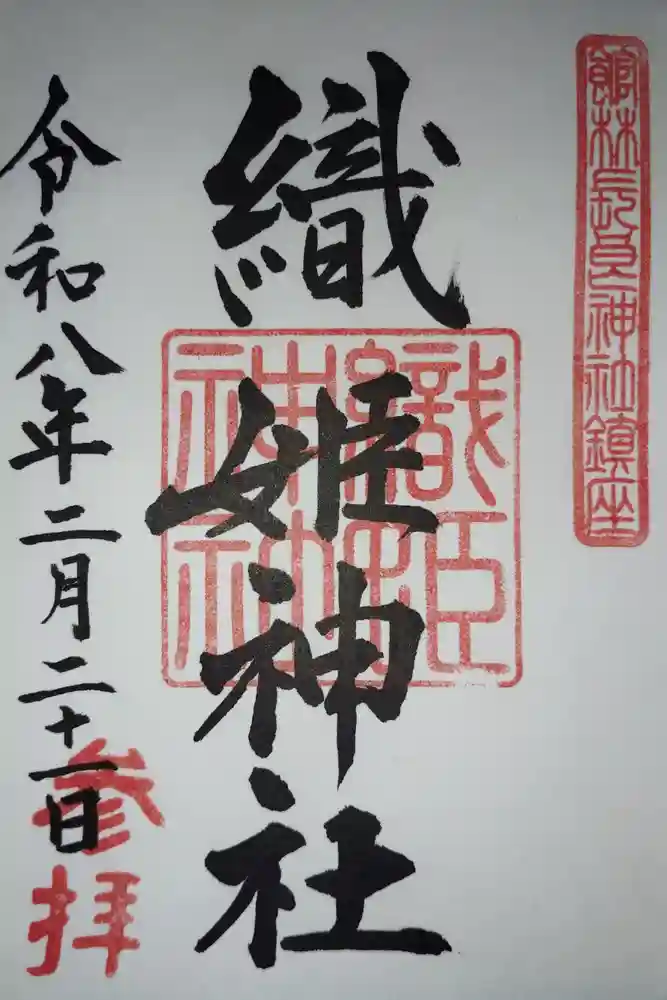 館林長良神社鎮座
織姫神社
織姫
神社
令和八年二月二十一日
参拝